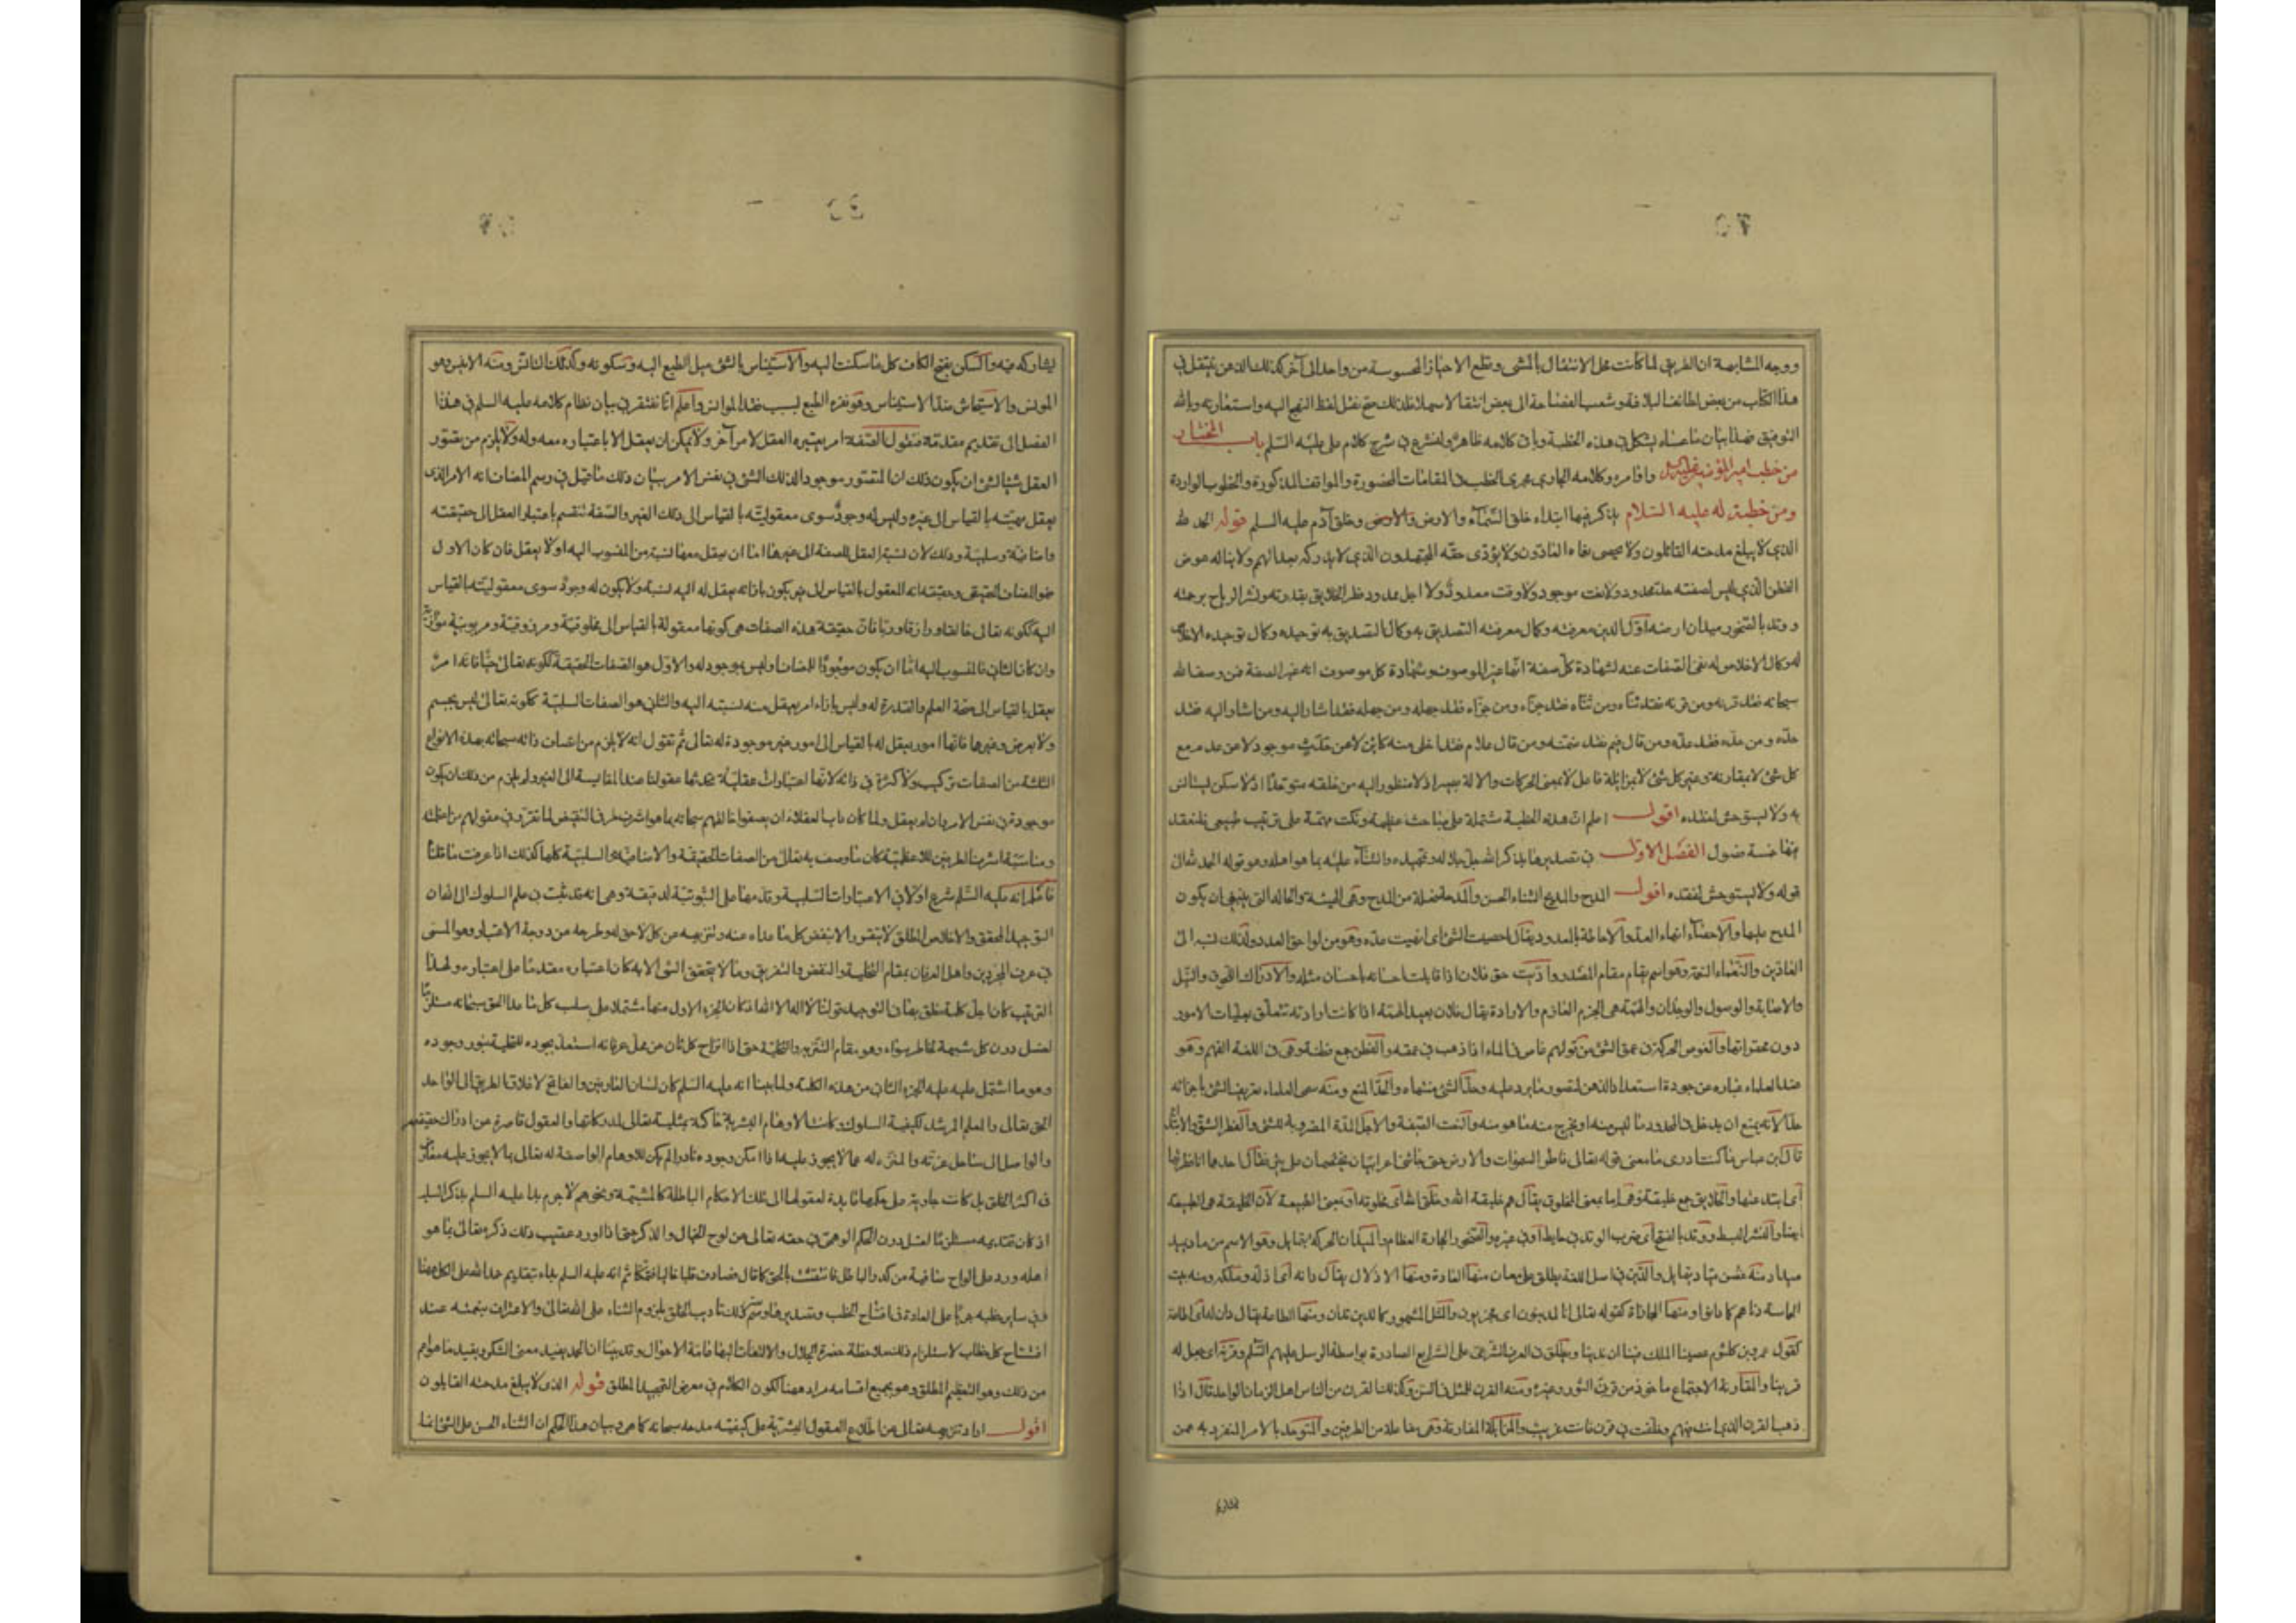 ووجه المشابهة ان الطريق لما كانت محل الانتقال بالمشى وقطع الاحياز المحسوسة من واحد الى آخر كذلك الذهن ينتقل في
هذا الكتاب من بعض لطائف البلاغة وشعب الفصاحة الى بعض انتقالا سهلا فلذلك صح نقل لفظ النهج اليه واستعارته وبالله
التوفيق فهذا بيان ما عساه يشكل في هذه الخطبة وباقى كلامه ظاهر ولنشرع في شرح كلام على عليه السلم باب المختار
من خطب امير المؤمنين واوامره وكلامه الجارى مجرى الخطب في المقامات المحضورة والمواقف المذكورة والخطوب الواردة
ومن خطبة له عليه السلام يذكر فيها ابتداء خلق السماء والارض وخلق آدم عليه السلم قوله الحمد لله
الذى لا يبلغ مدحته القائلون ولا يحصى نعماءه العادّون ولا يؤدى حقه المجتهدون الذى لا يدركه بعد الهمم ولا يناله غوص
الفطن الذى ليس لصفته حد محدود ولا نعت موجود ولا وقت معدود ولا اجل ممدود فطر الخلايق بقدرته ونشر الرياح برحمته
ووتد بالصخور ميدان ارضه اول الدين معرفته وكمال معرفته التصديق به وكمال التصديق به توحيده وكمال توحيده الاخلاص
له وكمال الاخلاص له نفى الصفات عنه لشهادة كل صفة انها غير الموصوف وشهادة كل موصوف انه غير الصفة فمن وصف الله
سبحانه فقد قرنه ومن قرنه فقد ثناه ومن ثناه فقد جزاه ومن جزاه فقد جهله ومن جهله فقد اشار اليه ومن اشار اليه فقد
حده ومن حده فقد عده ومن قال فيم فقد ضمنه ومن قال علام فقد اخلى منه كاين لا عن حدث موجود لا عن عدم مع
كل شئ لا بمقارنة وغير كل شئ لا بمزايلة فاعل لا بمعنى الحركات والالة بصير اذ لا منظور اليه من خلقه متوحد اذ لا سكن يستانس
به ولا يستوحش لفقده اقول اعلم ان هذه الخطبة مشتملة على مباحث عظيمة ونكت مهمة على ترتيب طبيعى فلنعقد
فيها خمسة فصول الفصل الاول في تصديرها بذكر الله جل جلاله وتمجيده والثناء عليه بما هو اهله وهو قوله الحمد لله الى
قوله ولا يستوحش لفقده اقول المدح والمديح الثناء الحسن والمدحة فعلة من المدح وهى الهيئة والحالة التى ينبغى ان يكون
المدح عليها والاحصاء انهاء العد والاحاطة بالمعدود يقال احصيت الشئ اى انهيت عده وهو من لواحق العدد ولذلك نسبه الى
العادّين والنعماء النعمة وهو اسم يقام مقام المصدر وادّيت حق فلان اذا قابلت احسانه باحسان مثله والادراك اللحوق والنيل
والاصابة والوصول والوجدان والهمة هى العزم الجازم والارادة يقال فلان بعيد الهمة اذا كانت ارادته تتعلق بعليات الامور
دون محقراتها والغوص الحركة في عمق الشئ من قولهم غاص في الماء اذا ذهب في عمقه والفطن جمع فطنة وهى في اللغة الفهم وهو
عند العلماء عبارة عن جودة استعداد الذهن لتصور ما يرد عليه وحد الشئ منتهاه والحد المنع ومنه سمى العلماء تعريف الشئ باجزائه
حدا لانه يمنع ان يدخل في المحدود ما ليس منه او يخرج منه ما هو منه والنعت الصفة والاجل المدة المضروبة للشئ والفطر الشق والابتداء
قال ابن عباس ما كنت ادرى ما معنى قوله تعالى فاطر السموات والارض حتى جاءنى اعرابيان يختصمان في بئر فقال احدهما انا فطرتها
اى ابتدعتها والخلايق جمع خليقة وهى اما بمعنى المخلوق يقال هم خليقة الله وخلق الله اى مخلوقه او بمعنى الطبيعة لان الخليقة هى الطبيعة
ايضا والنشر البسط ووتد بالفتح اى ضرب الوتد في حايط او في غيره والصخور الحجارة العظام والميدان الحركة بتمايل وهو الاسم من ماد يميد
ميدا ومنه غصن مياد يتمايل والدين في اصل اللغة يطلق على معان منها العادة ومنها الاذلال يقال دانه اى اذله وملكه ومنه بيت
الحماسة دناهم كما دانوا ومنها المجازاة كقوله تعالى انا لمدينون اى مجزيون والمثل المشهور كما تدين تدان ومنها الطاعة يقال دان له اى اطاعه
كقول عمرو بن كلثوم عصينا الملك فينا ان ندينا ويطلق في العرف الشرعى على الشرايع الصادرة بواسطة الرسل عليهم السلم وقرنه اى جعل له
قرينا والمقارنة الاجتماع ماخوذ من قرن الثور وغيره ومنه القرن للمثل في السن وكذلك القرن من الناس اهل الزمان الواحد قال اذا
ذهب القرن الذى انت فيهم وخلفت في قرن فانت غريب والمزايلة المفارقة وهى مفاعلة من الطرفين والمتوحد بالامر المتفرد به عمن
يشاركه فيه والسكن بفتح الكاف كل ما سكنت اليه والاستيناس بالشئ ميل الطبع اليه وسكونه وكذلك التانس ومنه الانيس وهو
المونس والاستيحاش ضد الاستيناس وهو نفرة الطبع بسبب فقد الموانس واعلم انا نفتقر في بيان نظام كلامه عليه السلم في هذا
الفصل الى تقديم مقدمة فنقول الصفة امر يعتبره العقل لامر آخر ولا يمكن ان يعقل الا باعتباره معه وله ولا يلزم من تصور
العقل شيئا لشئ ان يكون ذلك المتصور موجودا لذلك الشئ في نفس الامر بيان ذلك ما قيل في رسم المضاف انه الامر الذى
يعقل مهيته بالقياس الى غيره وليس له وجود سوى معقوليته بالقياس الى ذلك الغير والصفة تنقسم باعتبار العقل الى حقيقته
واضافية وسلبية وذلك لان نسبة العقل للصفة الى غيرها اما ان يعقل معها نسبة من المنسوب اليه او لا يعقل فان كان الاول
فهو المضاف الحقيقى وحقيقته انه المعقول بالقياس الى غير يكون بازائه يعقل له اليه نسبة ولا يكون له وجود سوى معقوليته بالقياس
اليه ككونه تعالى خالقا ورازقا وربا فان حقيقة هذه الصفات هى كونها معقولة بالقياس الى مخلوقية ومرزوقية ومربوبية موازية
وان كان الثانى فالمنسوب اليه اما ان يكون موجودا للمضاف او ليس بموجود له والاول هو الصفات الحقيقية ككونه تعالى حيا فانه امر
يعقل بالقياس الى صحة العلم والقدرة له وليس بازاء امر يعقل منه نسبة اليه والثانى هو الصفات السلبية ككونه تعالى ليس بجسم
ولا بعرض وغيرها فانها امور يعقل له بالقياس الى امور غير موجودة له تعالى ثم نقول انه لا يلزم من اتصاف ذاته سبحانه بهذه الانواع
الثلثة من الصفات تركيب ولا كثرة في ذاته لانها اعتبارات عقلية تحدثها عقولنا عند المقايسة الى الغير ولم يلزم من ذلك ان يكون
موجودة في نفس الامر وان لم يعقل ولما كان داب العقلاء ان يصفوا خالقهم سبحانه بما هو اشرف طرفى النقيض لما تقرر في عقولهم من اعظامه
ومناسبة اشرف الطرفين للاعظمية كان ما وصف به تعالى من الصفات الحقيقية والاضافية والسلبية كلها كذلك اذا عرفت ما قلنا
فاعلم انه عليه السلم شرع اولا في الاعتبارات السلبية وقدمها على الثبوتية لدقيقة وهى انه قد ثبت في علم السلوك الى الله ان
التوحيد المحقق والاخلاص المطلق لا يتقرر الا بنفض كل ما عداه عنه وتنزيهه عن كل لاحق له وطرحه عن درجة الاعتبار وهو المسمى
في عرف المجردين واهل العرفان بمقام التخلية والنفض والتفريق وما لا يتحقق الشئ الا به كان اعتباره مقدما على اعتباره ولهذا
الترتيب كان اجل كلمة نطق بها في التوحيد قولنا لا اله الا الله اذ كان الجزء الاول منها مشتملا على سلب كل ما عدا الحق سبحانه مستلزما
لغسل درن كل شبهة لخاطر سواه وهو مقام التنزيه والتخلية حتى اذا انزاح كل ثان عن محل عرفانه استعد بجوده للتحلية بنور وجوده
وهو ما اشتمل عليه الجزء الثانى من هذه الكلمة ولما بينا انه عليه السلم كان لسان العارفين والفاتح لاغلاق الطريق الى الواحد
الحق تعالى والمعلم المرشد لكيفية السلوك وكانت الاوهام البشرية حاكمة بمثليته تعالى لمدركاتها والعقول قاصرة عن ادراك حقيقته
والواصل الى ساحل عزته والمنزه له عما لا يجوز عليه اذا امكن وجوده نادرا لم يكن للاوهام الواصفة له تعالى بما لا يجوز عليه معارض
في اكثر الخلق بل كانت جارية على حكمها قايدة لعقولها الى تلك الاحكام الباطلة كالمشبهة ونحوهم لا جرم بدا عليه السلم بذكر السلب
اذ كان تقديمه مستلزما لغسل درن الحكم الوهمى في حقه تعالى عن لوح الخيال والذكر حتى اذا اورد عقيب ذلك ذكره تعالى بما هو
اهله ورد على الواح صافية من كدر الباطل فانتقشت بالحق كما قال فصادف قلبا خاليا فتمكنا ثم انه عليه السلم بداء بتقديم حمد الله على الكل ههنا
وفي ساير خطبه جريا على العادة في افتتاح الخطب وتصديرها وسر ذلك تاديب الخلق بلزوم الثناء على الله تعالى والاعتراف بنعمته عند
افتتاح كل خطاب لاستلزام ذلك ملاحظة حضرة الجلال والالتفات اليها عامة الاحوال وقد بينا ان الحمد يفيد معنى الشكر ويفيد ما هو اعم
من ذلك وهو التعظيم المطلق وهو بجميع اقسامه مراد ههنا لكون الكلام في معرض التمجيد المطلق قوله الذى لا يبلغ مدحته القايلون
اقول اراد تنزيهه تعالى عن اطلاع العقول البشرية على كيفية مدحه سبحانه كما هى وبيان هذا الحكم ان الثناء الحسن على الشئ انما